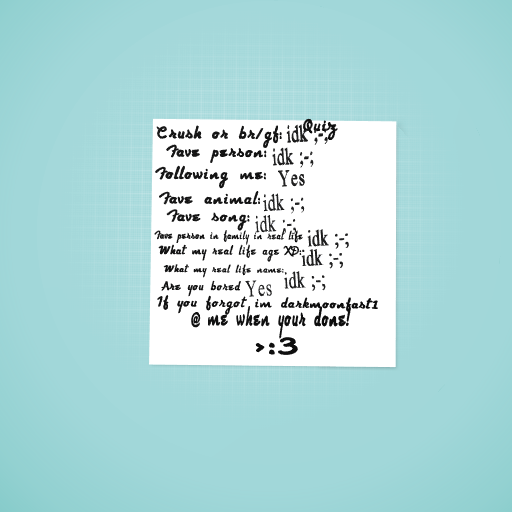 Quiz
Crush or br/gf: idk ;-;
Fave person: idk ;-;
Following me: Yes
Fave animal: idk ;-;
Fave song: idk ;-;
Fave person in family in real life idk ;-;
What my real life age XD: idk ;-;
What my real life name: idk ;-;
Are you bored Yes
If you forgot im darkmoonfast1
@ me when your done!
>:3